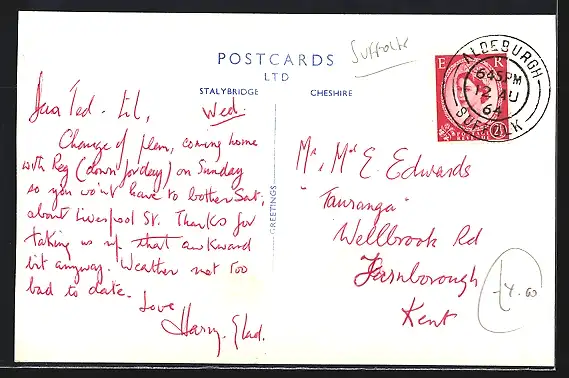 Suffolk
POSTCARDS
LTD
STALYBRIDGE CHESHIRE
GREETINGS
Dear Ted - Lil,
Wed.
Change of plan, coming home
with Reg (down for day) on Sunday
so you won't have to bother Sat,
about Liverpool St. Thanks for
taking us up that awkward
bit anyway. Weather not too
bad to date.
Love
Harry. Glad.
E R
ALDEBURGH
645 PM
12 AU
64
SUFFOLK
Mr, Mrs E. Edwards
"Tauranga"
Wellbrook Rd
Farnborough
Kent
£4.00